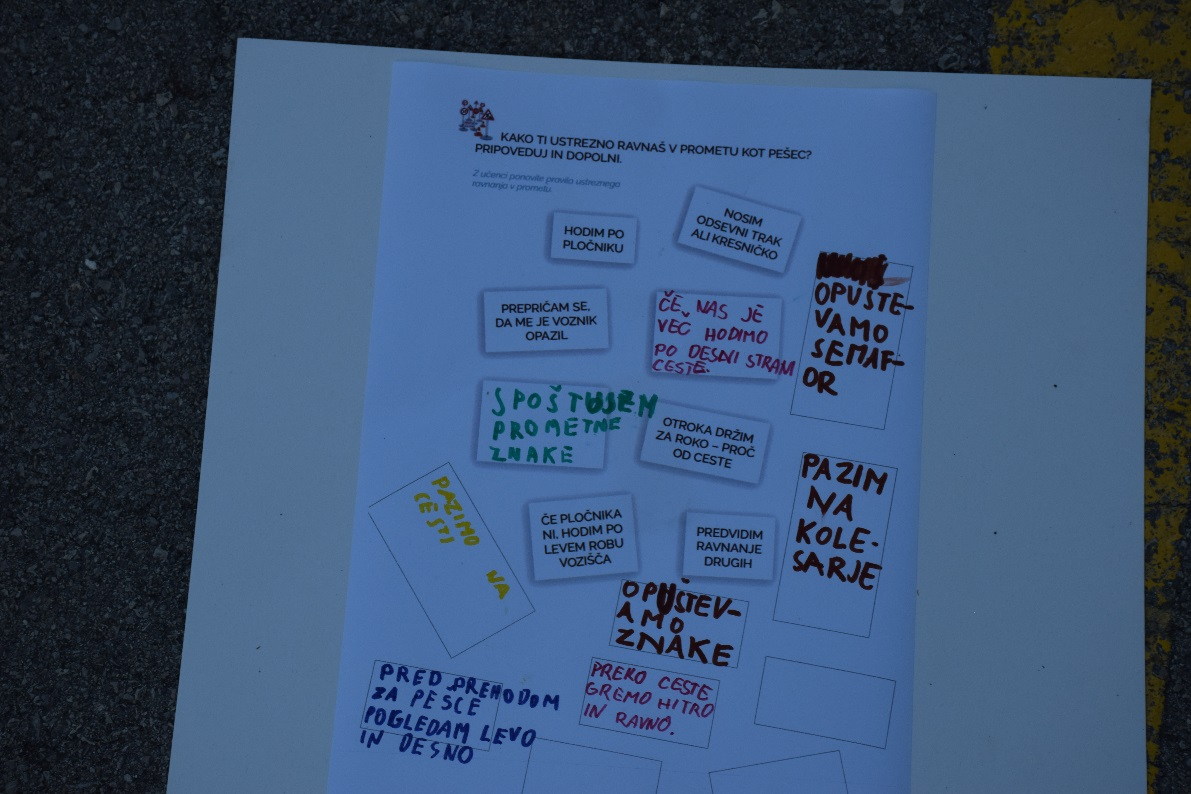 KAKO TI USTREZNO RAVNAŠ V PROMETU KOT PEŠEC?
PRIPOVEDUJ IN DOPOLNI.
Z učenci ponovite pravila ustreznega
ravnanja v prometu.
HODIM PO
PLOČNIKU
NOSIM
ODSEVNI TRAK
ALI KRESNIČKO
OPUŠTE-
VAMO
SEMAF-
OR
PREPRIČAM SE,
DA ME JE VOZNIK
OPAZIL
ČE NAS JE
VEČ HODIMO
PO DESNI STRANI
CESTE.
SPOŠTUJEM
PROMETNE
ZNAKE
OTROKA DRŽIM
ZA ROKO – PROČ
OD CESTE
PAZIM
NA
KOLE-
SARJE
PAZIMO NA
CESTI
ČE PLOČNIKA
NI, HODIM PO
LEVEM ROBU
VOZIŠČA
PREDVIDIM
RAVNANJE
DRUGIH
OPUŠTEV-
AMO
ZNAKE
PRED PREHODOM
ZA PEŠCE
POGLEDAM LEVO
IN DESNO
PREKO CESTE
GREMO HITRO
IN RAVNO.